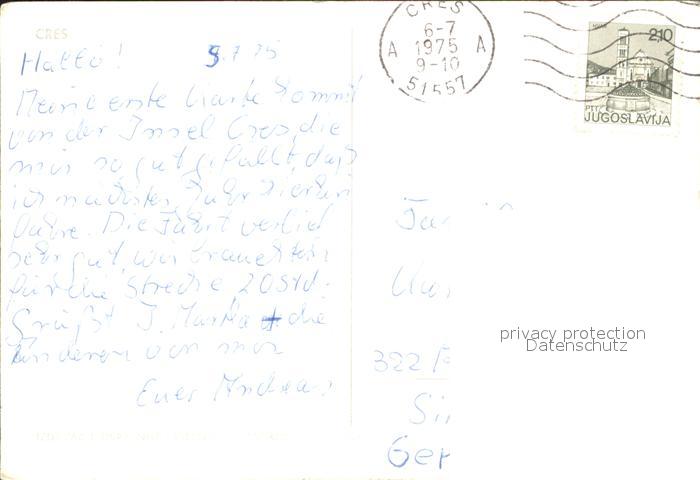 CRES
Hallo! 5.7.75
Meine erste Karte kommt
von der Insel Cres, die
mir so gut gefällt, daß
ich nächstes Jahr hierhin
fahre. Die Fahrt verlief
sehr gut, wir brauchten
für die Strecke 20 Std.
Grüßt J. die
anderen von mir
Euer Andreas
CRES
6-7
A 1975 A
9-10
51557
2,10
PTT
JUGOSLAVIJA
322
Ger
privacy protection
Datenschutz